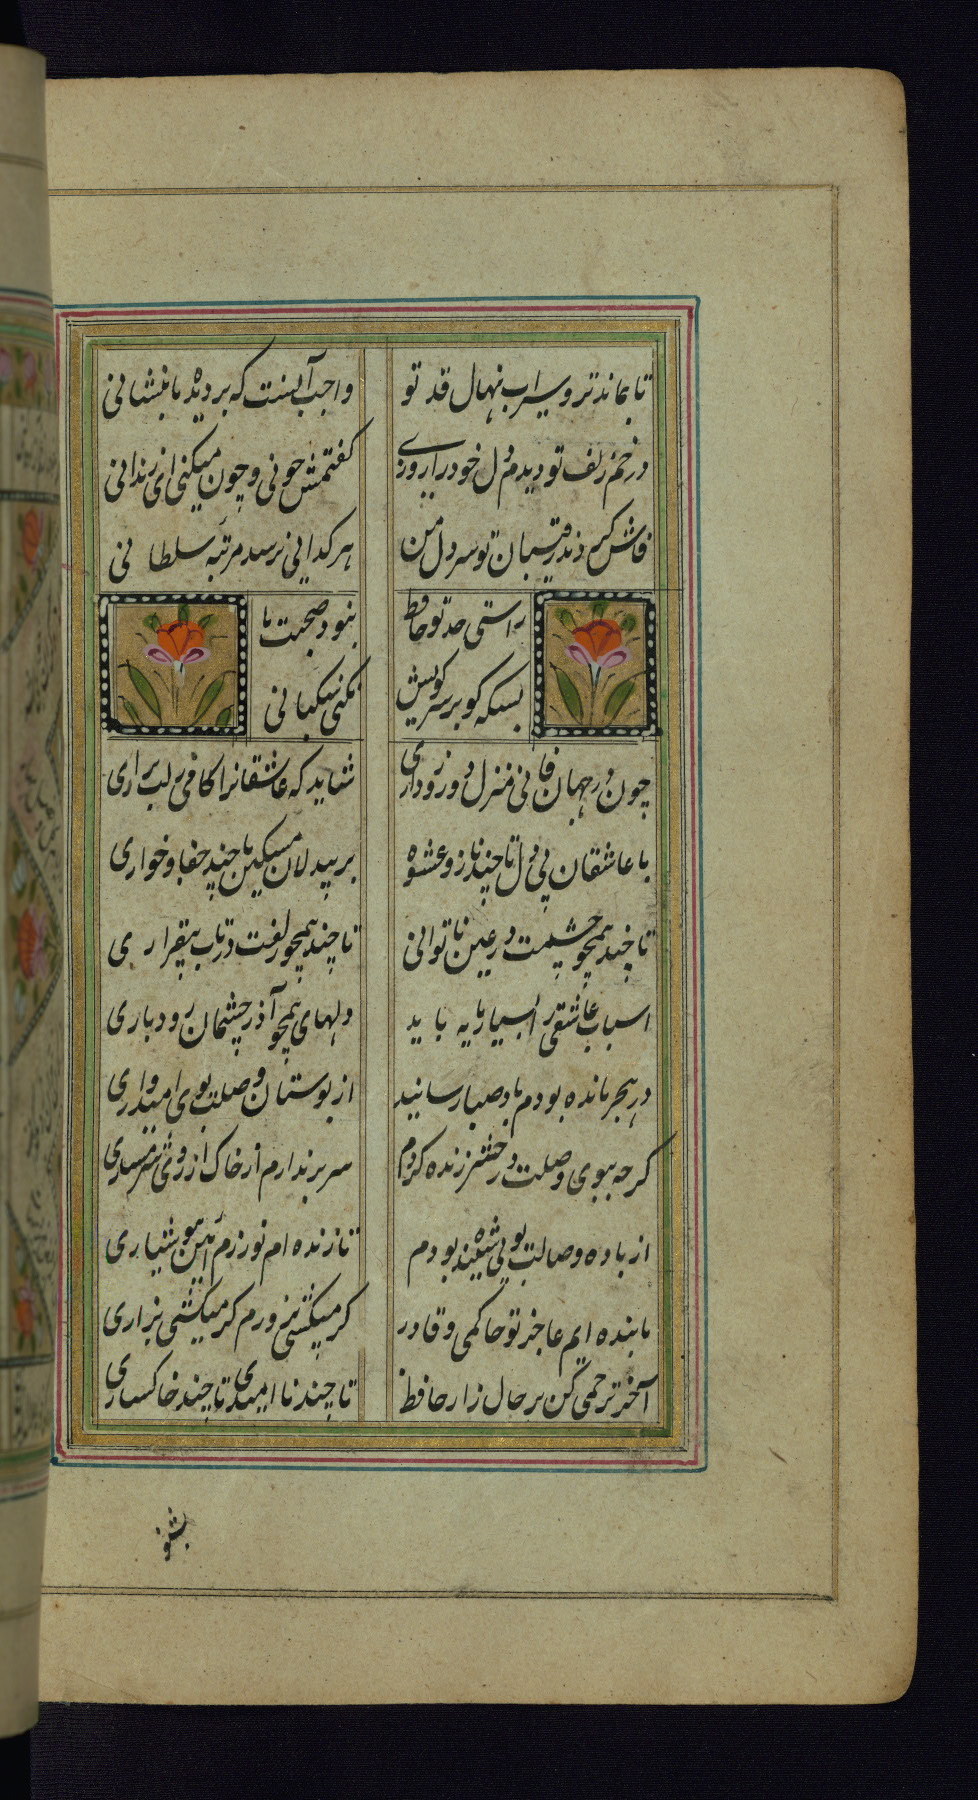 تا بماند تر و سیراب نهال قد تو
واجب آنست که بر دیده ما بنشانی
در خم زلف تو دیدم دل خود را روزی
کفتمش چونی و چون میکنی ای زندانی
فاش کر دند رقیبان تو سر دل من
هر کدائی نرسد مرتبه سلطانی
راستی حد تو حافظ
نبود صحبت ما
بسکه کر بر سر کویش
نکنی سکبانی
چون در جهان فانی منزل دو روز داری
شاید که عاشقانرا کامی ز لب براری
با عاشقان بی دل تا چند ناز و عشوه
بر بیدلان مسکین تا چند جفا و خواری
تا چند همچو چشمت در عین ناتوانی
تا چند همچو زلفت در تاب بیقراری
اسباب عاشقی را بسیار مایه باید
دلهای همچو آذر چشمان رودباری
در هجر مانده بودم باد صبا رسانید
از بوستان وصلت بوی امیدواری
کرچه ببوی وصلت در حشر زنده کردم
سر برندارم از خاک از روی شرمساری
از باده وصالت بودم
تا زنده ام نورزم آئین هوشیاری
ما بنده ایم عاجز تو حاکمی و قادر
کر میکشی بزورم کر میکشی بزاری
آخر ترحمی کن بر حال زار حافظ
تا چند نا امیدی تا چند خاکساری
بشنو